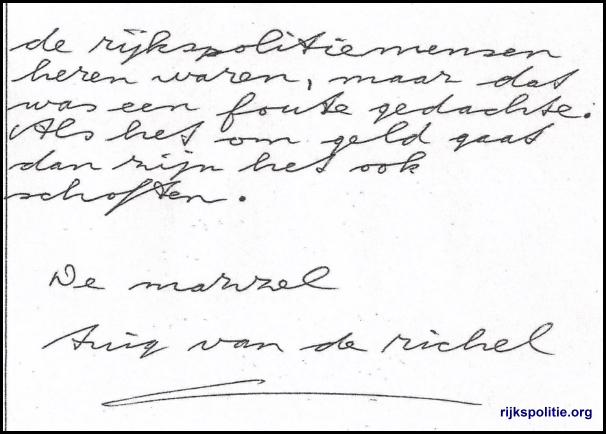 de rijkspolitiemensen
heren waren, maar dat
was een foute gedachte.
Als het om geld gaat
dan zijn het ook
schoften.
De mazzel
tuig van de richel
rijkspolitie.org